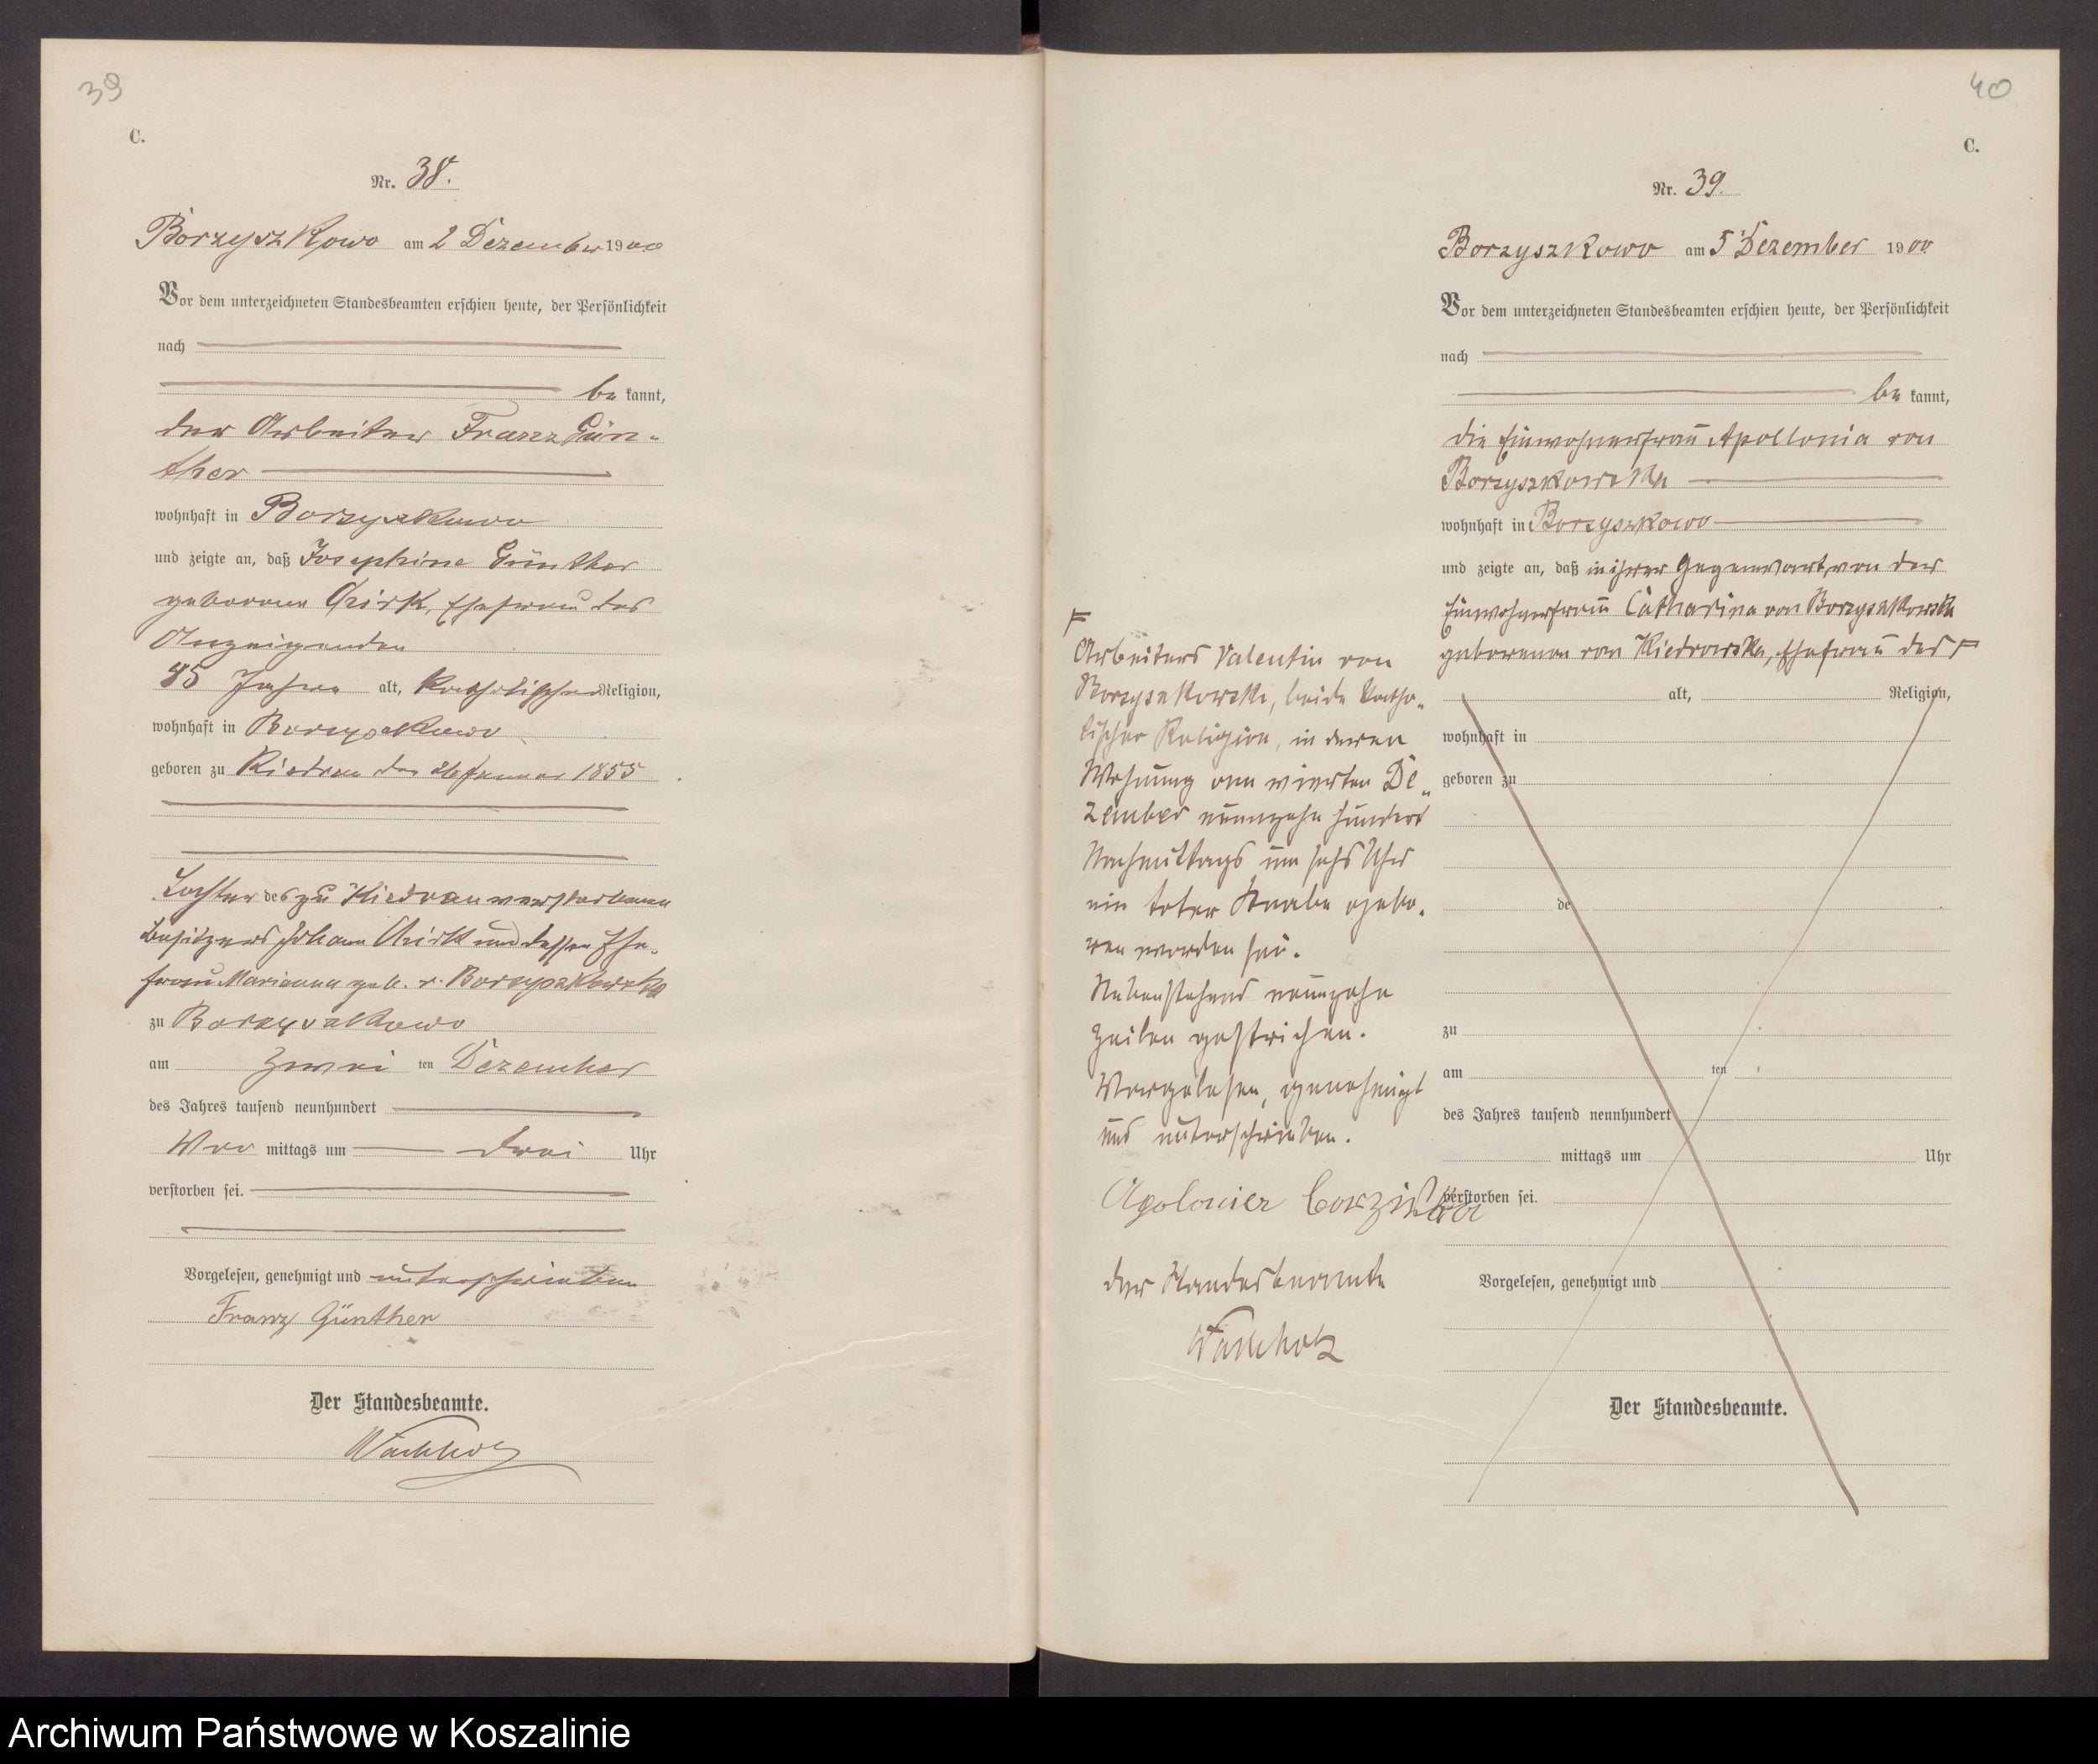 39
C.
Nr. 38.
Borzyszkowo am 2 Dezember 1900
Vor dem unterzeichneten Standesbeamten erschien heute, der Persönlichkeit
nach
be kannt,
der Arbeiter Franz Gün-
ther
wohnhaft in Borzyszkowo
und zeigte an, daß Josephine Günther
geborene, Ehefrau des
Anzeigenden
45 Jahre alt, katholischer Religion,
wohnhaft in Borzyszkowo
geboren zu Kiedrau den Januar 1855
Tochter des zu Kiedrau verstorbenen
Besitzers Johann und dessen Ehe-
frau Marianna geb. v. Borzyszkowska
zu Borzyszkowo
am zwei ten Dezember
des Jahres tausend neunhundert
Vor mittags um drei Uhr
verstorben sei.
Vorgelesen, genehmigt und unterschrieben
Franz Günther
Der Standesbeamte.
Wachholz
40
C.
Nr. 39.
Borzyszkowo am 5 Dezember 1900
Vor dem unterzeichneten Standesbeamten erschien heute, der Persönlichkeit
nach
be kannt,
die Einwohnerfrau Apollonia von
Borzyszkowska
wohnhaft in Borzyszkowo
und zeigte an, daß in ihrer Gegenwart, von der
Einwohnerfrau Catharina von Borzyszkowska
geborenen von Kiedrowska, Ehefrau des F
F
Arbeiters Valentin von
Borzyszkowski, beide katho-
lischer Religion, in deren
Wohnung am vierten De-
zember neunzehn hundert
Nachmittags um sechs Uhr
ein toter Knabe gebo-
ren worden sei.
Nebenstehend neunzehn
Zeilen gestrichen.
Vorgelesen, genehmigt
und unterschrieben.
Apolonier
der Standesbeamte
Wachholz
alt, Religion,
wohnhaft in
geboren zu
de
zu
am ten
des Jahres tausend neunhundert
mittags um Uhr
verstorben sei.
Vorgelesen, genehmigt und
Der Standesbeamte.
Archiwum Państwowe w Koszalinie